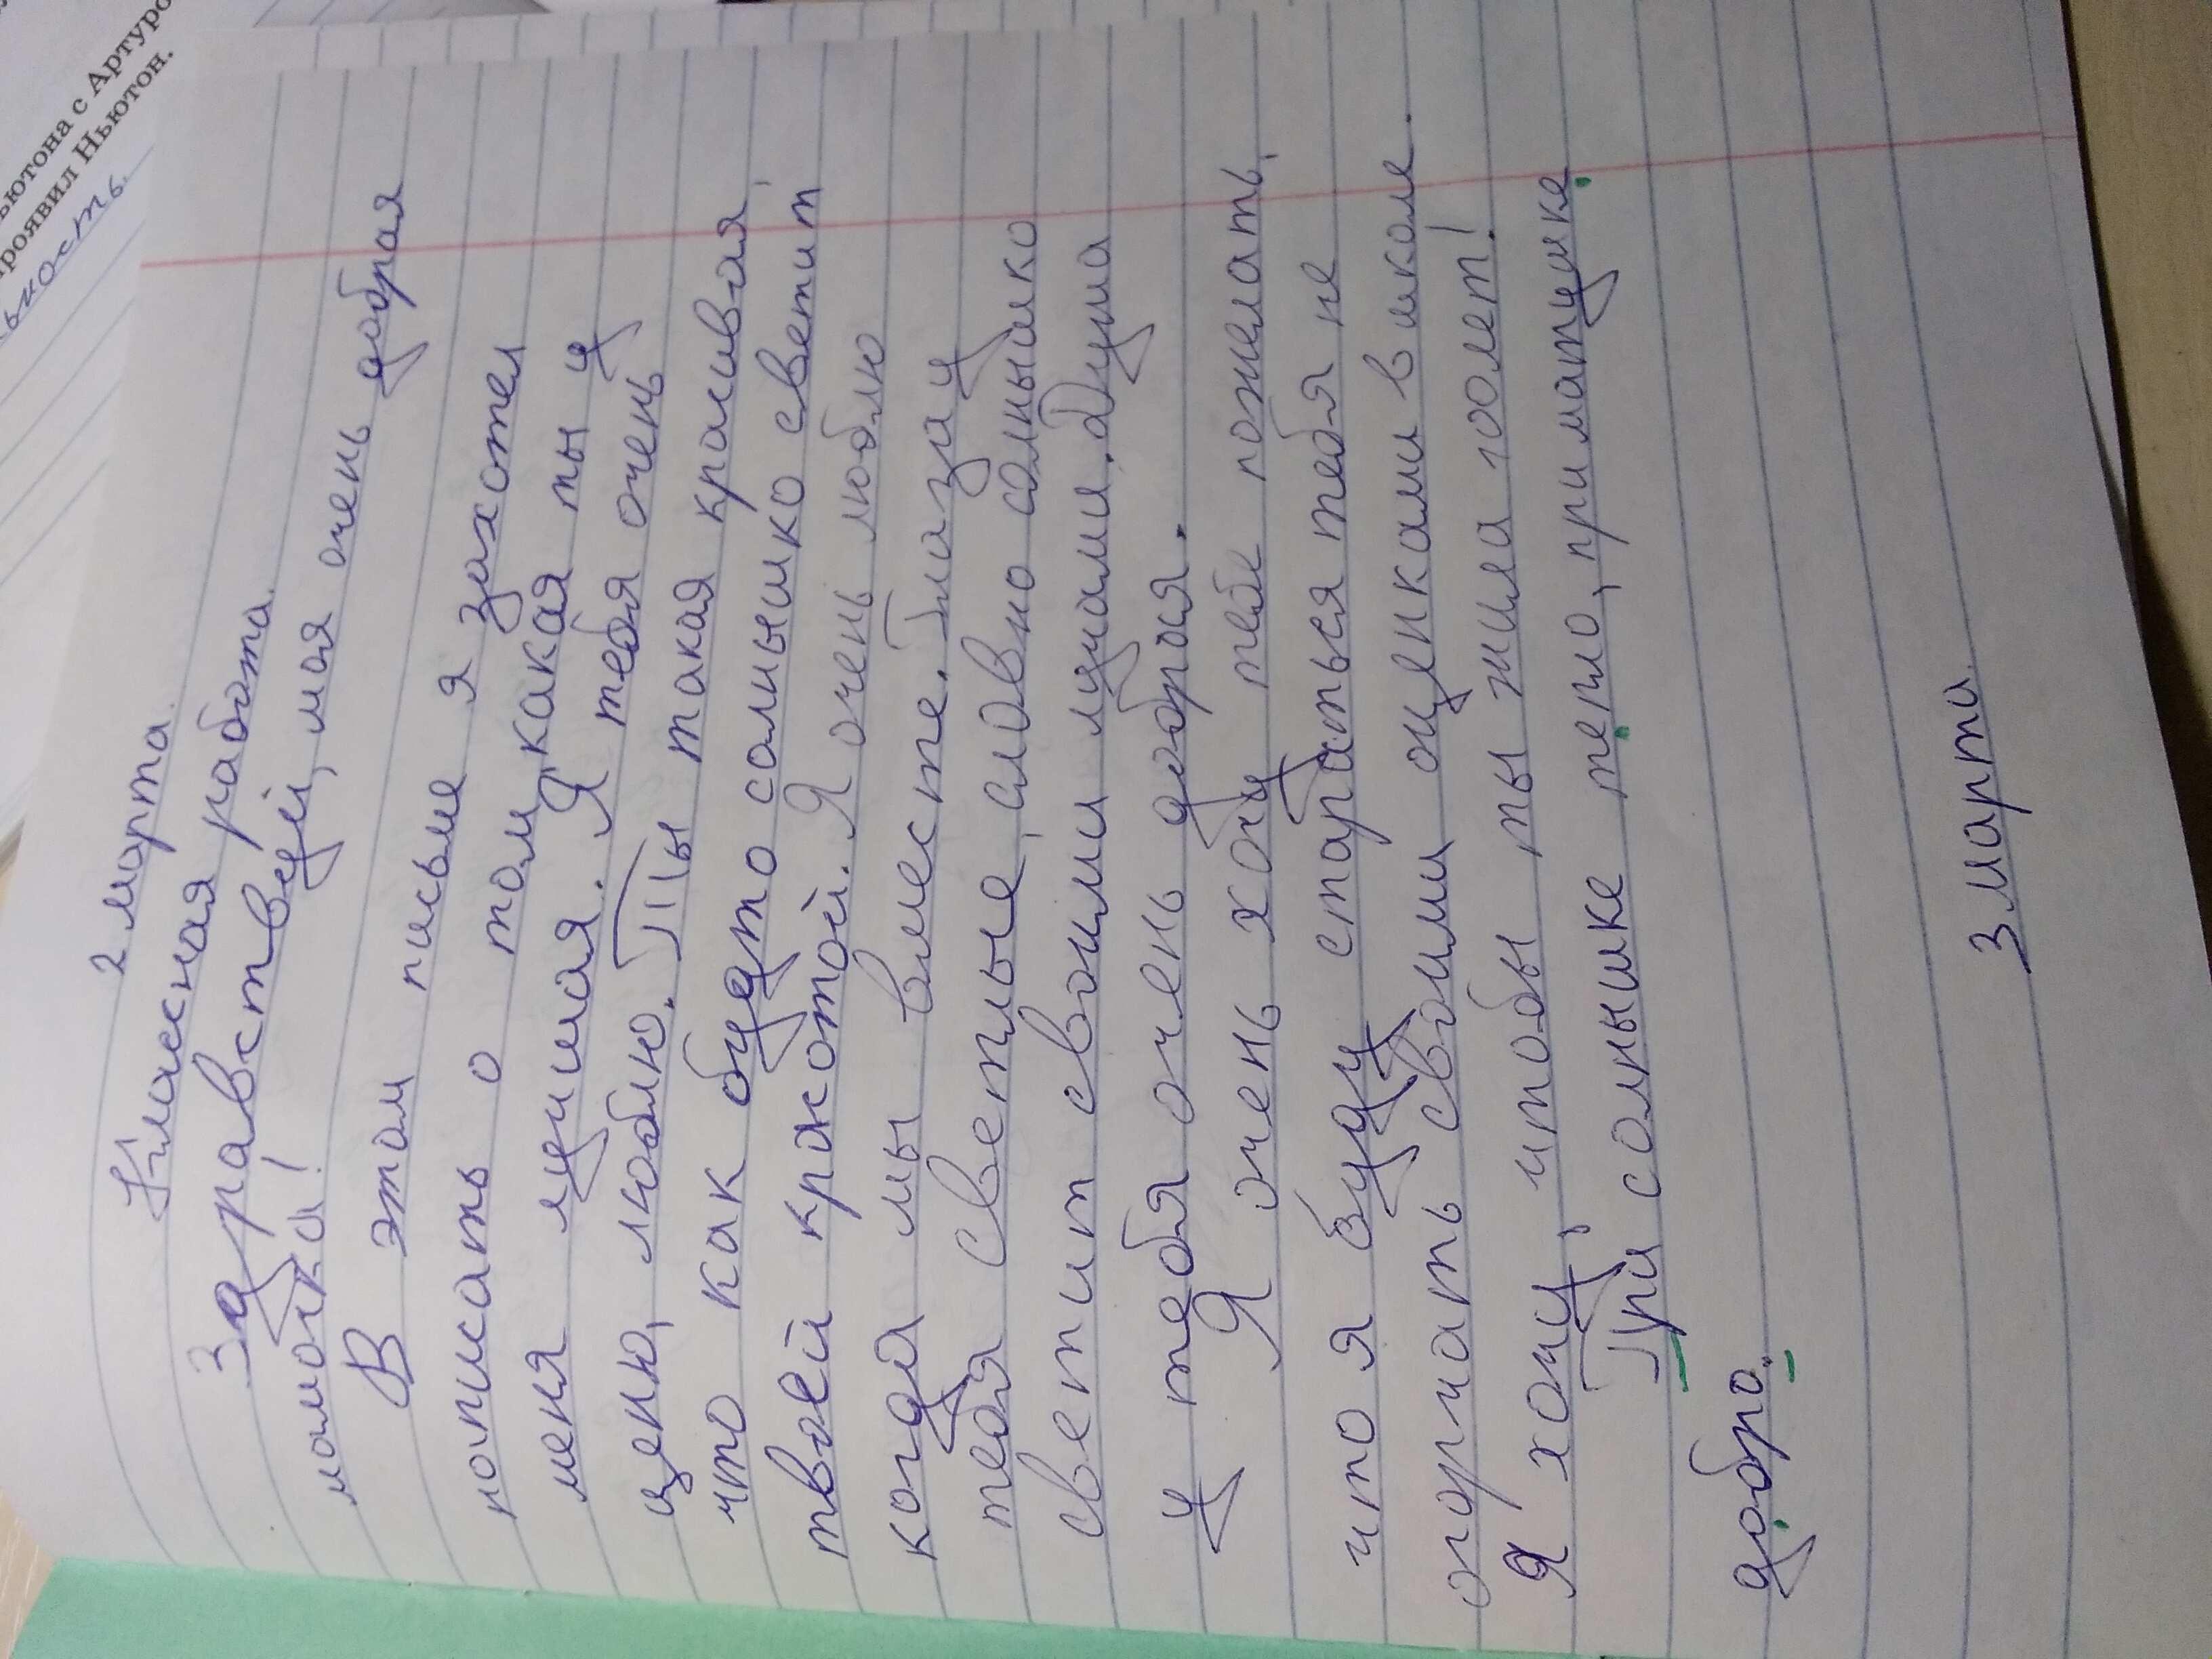 ьютона с Артуро
проявил Ньютон.
ьность.
2 марта.
Классная работа.
Здравствуй, моя очень добрая
мамочка!
В этом письме я захотел
написать о том, какая ты у
меня лучшая. Я тебя очень
ценю, люблю. Ты такая красивая,
что как будто солнышко светит
твоей красотой. Я очень люблю
когда мы вместе. Глаза у
тебя светлые, словно солнышко
светит своими лучами. Душа
у тебя очень добрая.
Я очень хочу тебе пожелать,
что я буду стараться тебя не
огорчать своими оценками в школе.
Я хочу, чтобы ты жила 100 лет!
При солнышке тепло, при матушке
добро.
3 марта.